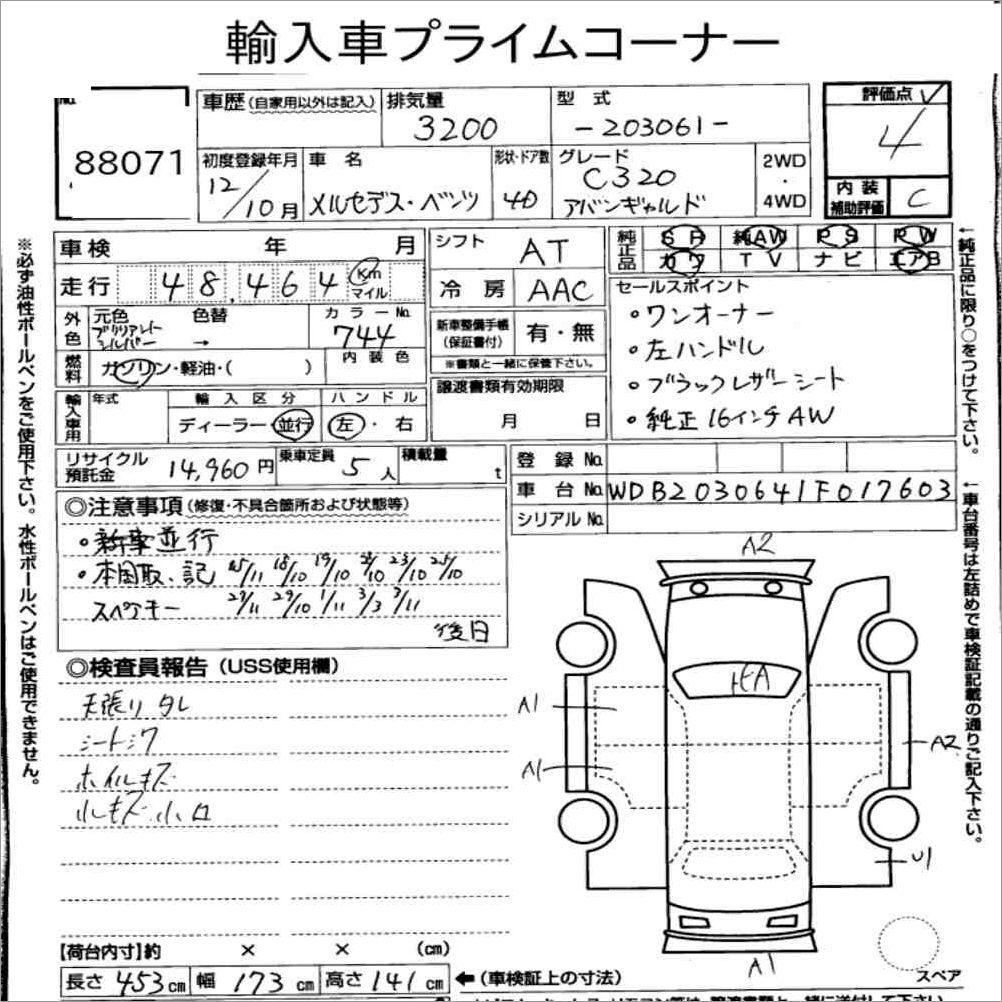 輸入車プライムコーナー
No.
88071
車歴(自家用以外は記入)
排気量
3200
型式
-203061-
評価点
4
初度登録年月
12/10月
車名
メルセデス・ベンツ
形状・ドア数
4D
グレード
C320
アバンギャルド
2WD
・
4WD
内装
補助評価
C
車検 年 月
走行 48,464 Km マイル
外色
元色
ブリリアント
シルバー
色替
→
カラーNo.
744
内装色
燃料
ガソリン・軽油・( )
輸入車用
年式
輸入区分
ディーラー・並行
ハンドル
左・右
シフト AT
冷房 AAC
新車整備手帳
(保証書付)
有・無
※書類と一緒に保管下さい。
譲渡書類有効期限
月 日
純正品
SR 純AW PS PW
カワ TV ナビ エアB
セールスポイント
・ワンオーナー
・左ハンドル
・ブラックレザーシート
・純正16インチAW
リサイクル
預託金
14,960円
乗車定員
5人
積載量
t
登録No.
車台No. WDB2030641F017603
シリアルNo.
◎注意事項(修復・不具合箇所および状態等)
・新車並行
・本国取、記 15/11 18/10 19/10 21/10 23/10 25/10
スペアキー 27/11 29/10 1/11 3/3 3/11
後日
◎検査員報告(USS使用欄)
天張りタレ
シートシワ
ホイルキズ
小キズ小凹
A2
A1
A1
A2
U1
A1
スペア
【荷台内寸】約 × × (cm)
長さ 453cm 幅 173cm 高さ 141cm ←(車検証上の寸法)
※必ず油性ボールペンをご使用下さい。水性ボールペンはご使用できません。
←純正品に限り○をつけて下さい。
←車台番号は左詰めで車検証記載の通りご記入下さい。